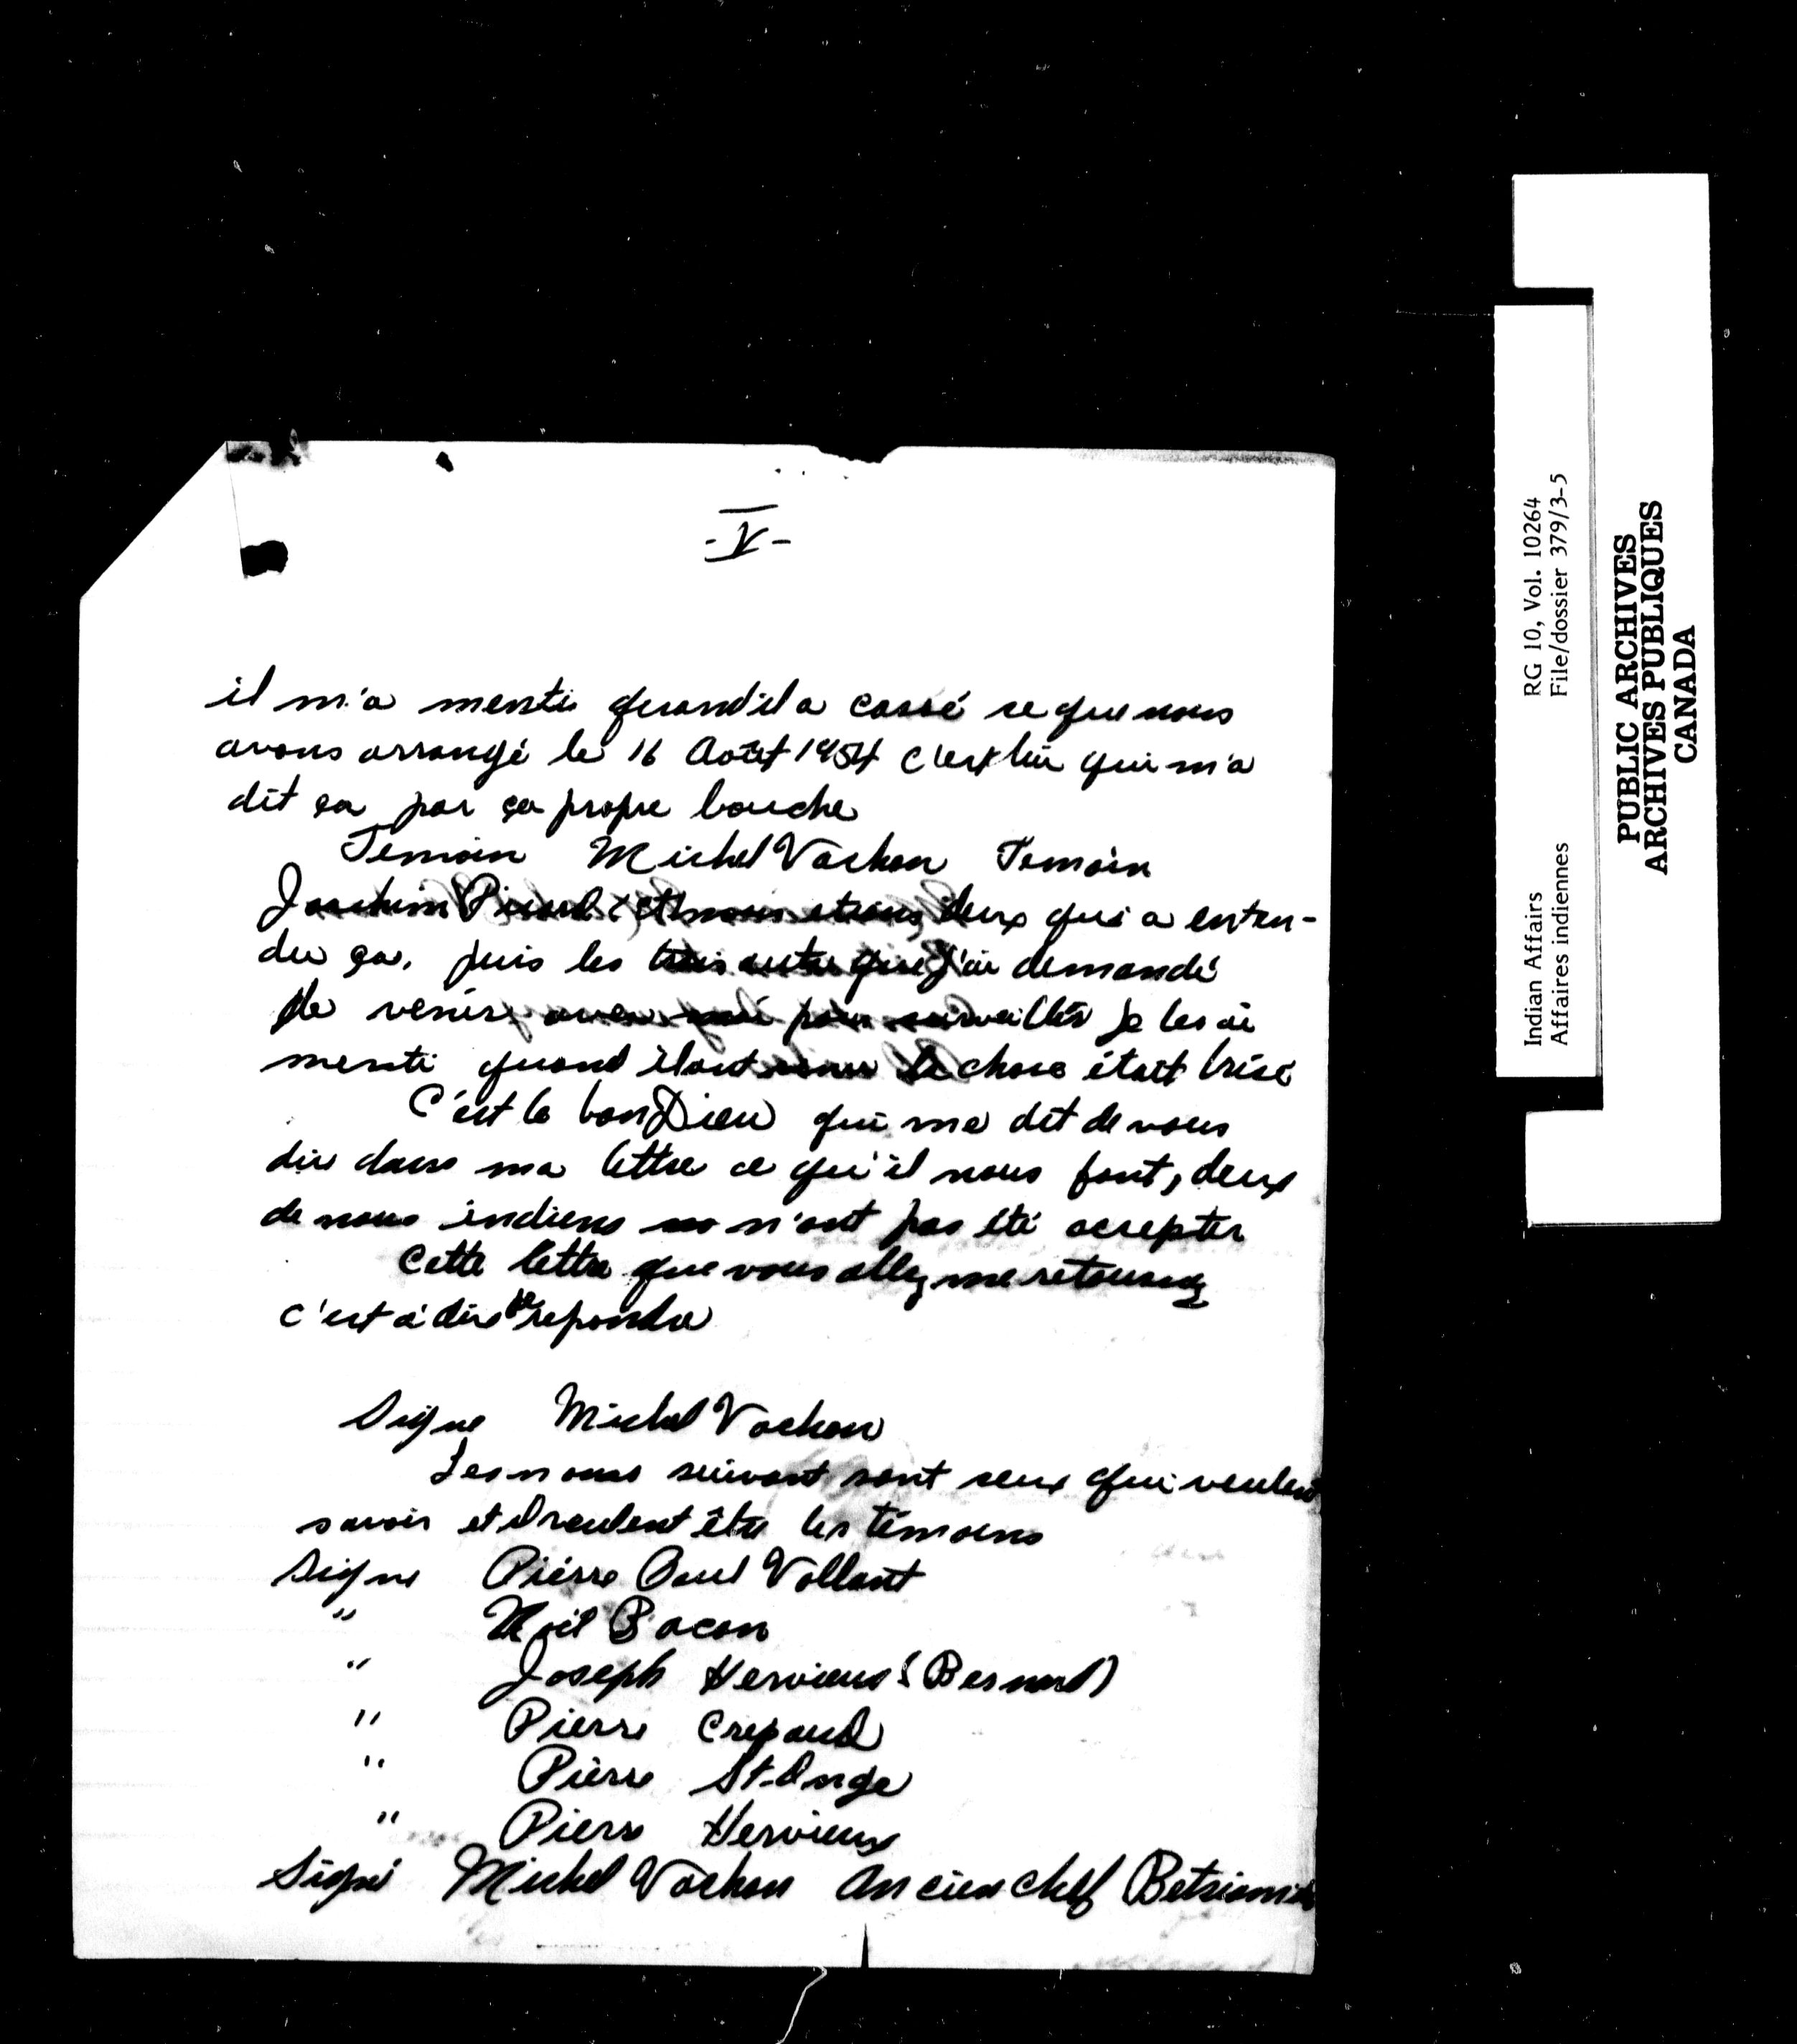 - V -
il m'a menti quand il a cassé ce que nous
avons arrangé le 16 Août 1954 c'est lui qui m'a
dit ça par ça propre bouche
Temoin Michel Vachon Temoin
Joachim Picard et nous étions deux qui a enten-
du ça. puis les trois autre que j'ai demandé
de venir avec moi pour surveiller je les ai
menti quand ilont la chose était brisé
C'est le bon Dieu qui me dit de vous
dire dans ma lettre ce qu'il nous font, deux
de nous indiens n'ont pas été accepter
Cette lettre que vous allez me retournez
c'est à dire de reponde
Signe Michel Vachon
Les noms suivant sont ceux qui veulent
savoir et il veulent être les témoins
Signe Pierre Paul Vollant
" Noël Bacon
" Joseph Hervieux (Bernard)
" Pierre Crepaud
" Pierre St-Onge
" Pierre Hervieux
Signé Michel Vachon Ancien chef Betsiamit
Indian Affairs RG 10, Vol. 10264
Affaires indiennes File/dossier 379/3-5
PUBLIC ARCHIVES
ARCHIVES PUBLIQUES
CANADA